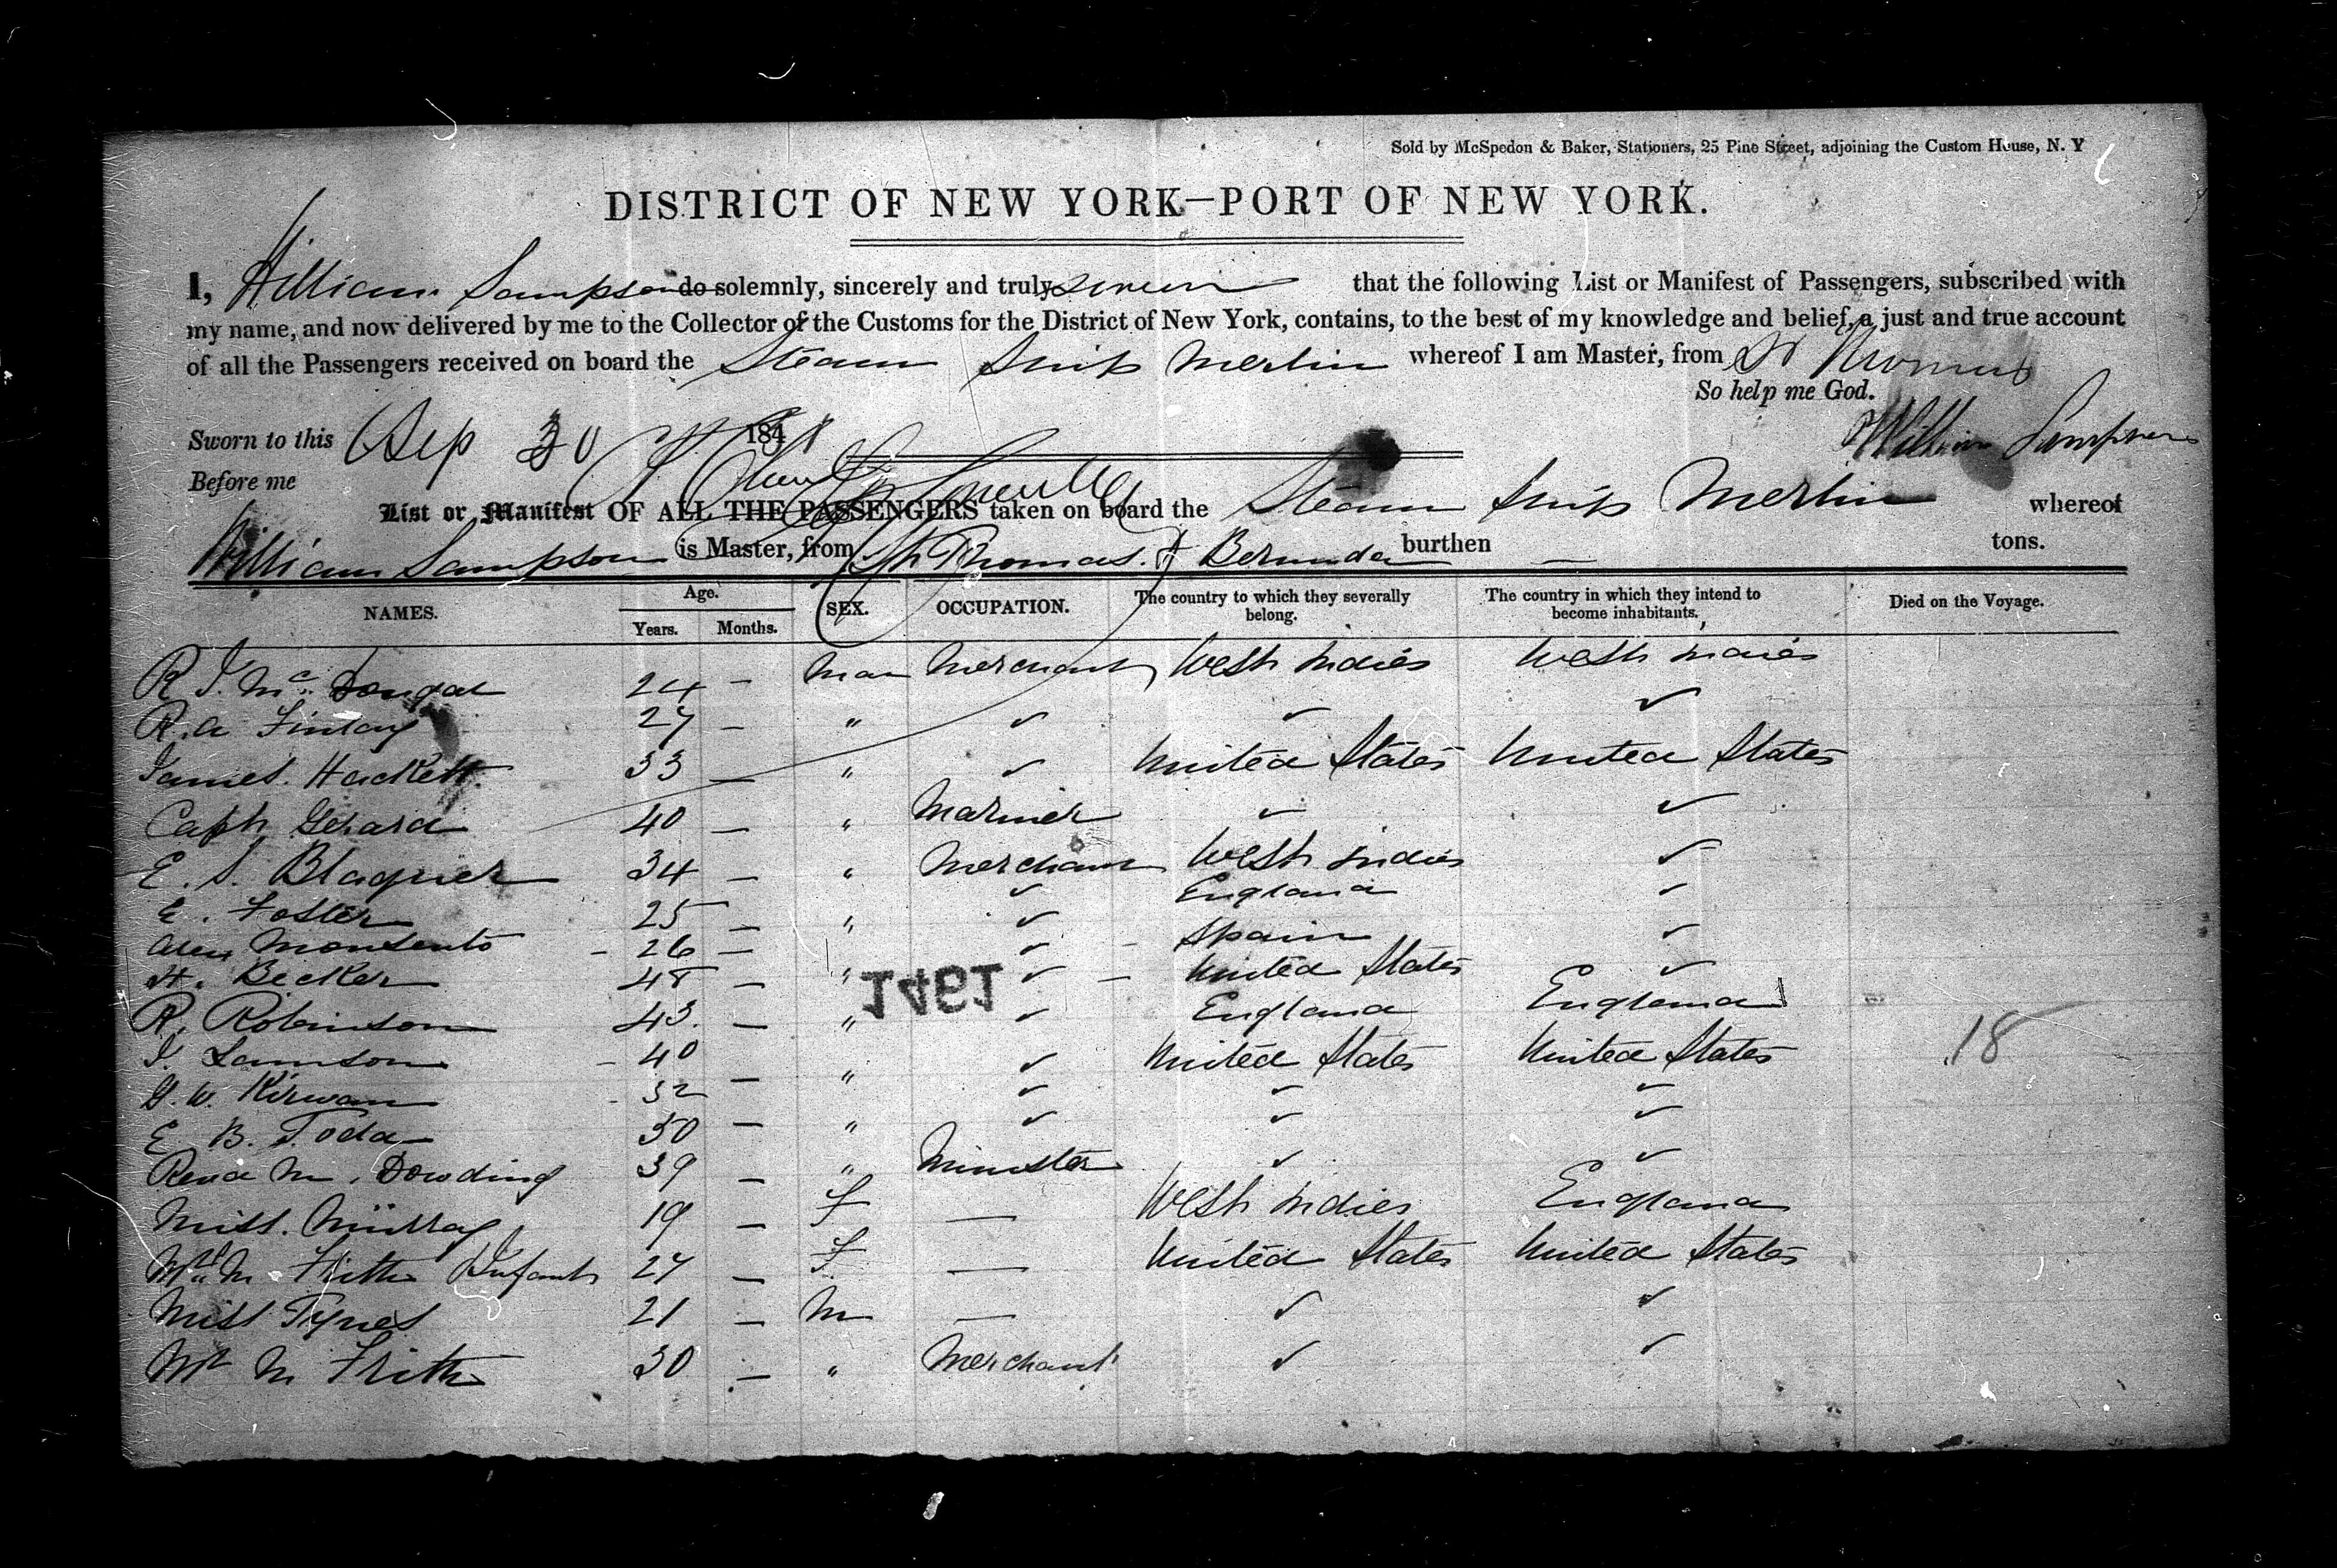 Sold by McSpedon & Baker, Stationers, 25 Pine Street, adjoining the Custom House, N. Y
DISTRICT OF NEW YORK—PORT OF NEW YORK.
I, William Sampson do solemnly, sincerely and truly swear that the following List or Manifest of Passengers, subscribed with
my name, and now delivered by me to the Collector of the Customs for the District of New York, contains, to the best of my knowledge and belief, a just and true account
of all the Passengers received on board the Steam Ship Merlin whereof I am Master, from St Thomas
So help me God.
Sworn to this Sep 30 184 William Sampson
Before me
List or Manifest OF ALL THE PASSENGERS taken on board the Steam Ship Merlin whereof
William Sampson is Master, from St Thomas & Bermuda burthen — tons.
NAMES. Age. Years. Months. SEX. OCCUPATION. The country to which they severally belong. The country in which they intend to become inhabitants. Died on the Voyage.
R J. Mc Dougal 24 — Man Merchant West Indies West Indies
R. A Finlay 27 — " ✓ ✓ ✓
James Hackett 33 — " ✓ United States United States
Capt Gerard 40 — " Mariner ✓ ✓
E. S. Blaquier 34 — " Merchant West Indies ✓
E. Foster 25 — " ✓ England ✓
Alex Monsanto 26 — ✓ Spain ✓
H. Becker 48 — " ✓ United States ✓
1461
R. Robinson 43 — " ✓ England England
J. Lamson 40 — " ✓ United States United States
18
G. W. Kirwan 32 ✓ ✓ ✓
E B. Todd 30 — " ✓ ✓ ✓
Revd M. Dowding 39 — " Minister ✓ ✓
Miss Murray 19 — F — West Indies England
Mrs M Frith & Infant 27 — F — United States United States
Miss Tynes 21 — M — ✓ ✓
Mr M Frith 30 — " Merchant ✓ ✓